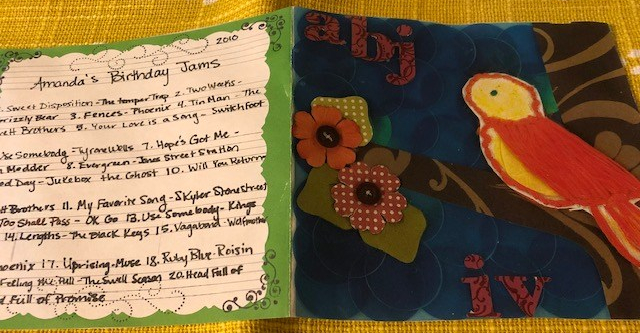 2010
Amanda's Birthday Jams
Sweet Disposition - The temper Trap 2. Two Weeks -
Grizzly Bear 3. Fences - Phoenix 4. Tin Man - The
Brothers 5. Your Love is a Song - Switchfoot
Use Somebody - Tyrone Wells 7. Hope's Got Me -
8. Evergreen - Jane Street Station
Day - Jukebox the Ghost 10. Will You Return
Brothers 11. My Favorite Song - Skyler Stonestreet
Too Shall Pass - OK Go 13. Use Somebody - Kings
14. Lengths - The Black Keys 15. Vagabond - Wolfmother
17. Uprising - Muse 18. Ruby Blue - Roisin
Feeling the Pull - The Swell Season 20. Head Full of
Full of Promise
abj
iv